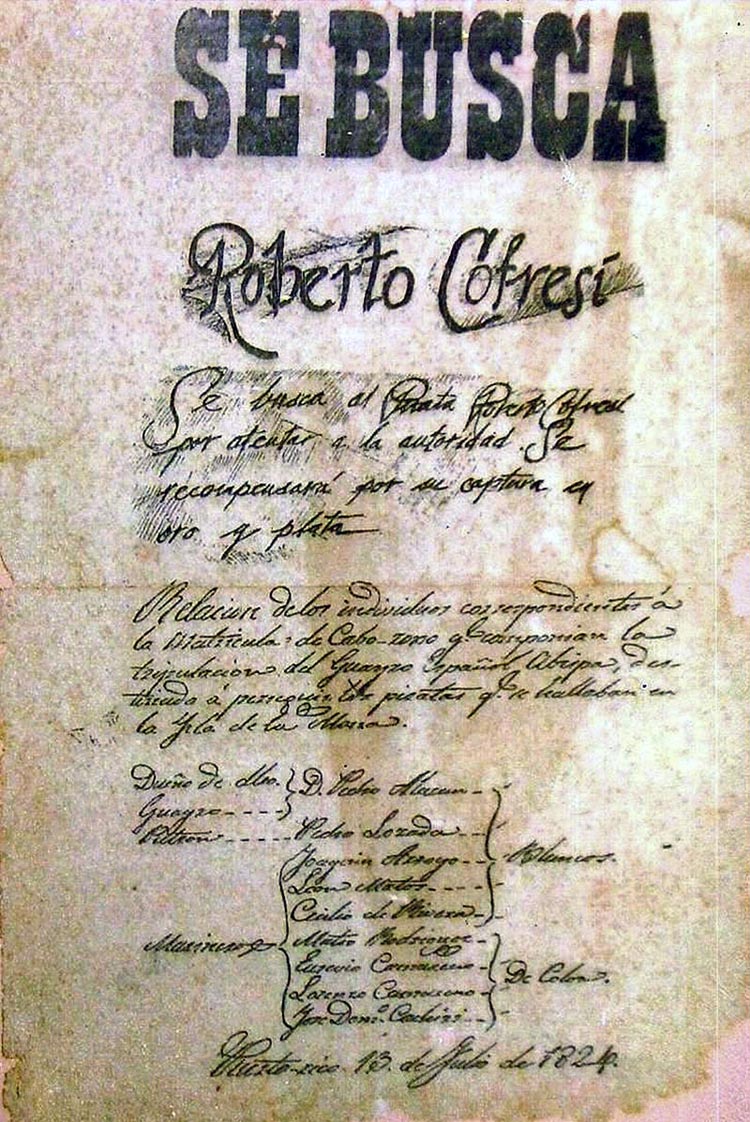 SE BUSCA
Roberto Cofresí
Se busca al Pirata Roberto Cofresí
por atentar a la autoridad. Se
recompensará por su captura en
oro y plata
Relacion de los individuos correspondientes á
la Matricula de Cabo-rojo qe componian la
tripulacion del Guayro Español Abispa, des-
tinado á perseguir los piratas qe se hallaban en
la Isla de la Mona.
Dueño de dho. D. Pedro Alacan
Guayro
Patron Pedro Lozada
Joaquin Arroyo Blancos.
Leon Matos
Cecilio de Rivera
Marineros Mateo Rodriguez
Eusevio Carrasco
De Color.
Lorenzo Carrasco
Jose Domo.
Puerto-rico 13 de Julio de 1824.